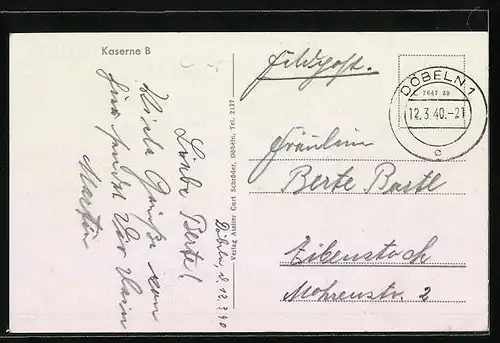 Kaserne B
Feldpost.
DÖBELN 1
7647 39
12.3.40.-21
c
Fräulein
Berte Bastl
Eibenstock
Mohrenstr. 2
Verlag Atelier Curt Schröder, Döbeln, Tel. 2127
Döbeln, d. 12.3.40
Liebe Berte!
Viele Grüße von
hier sendet Dir Dein
Martin